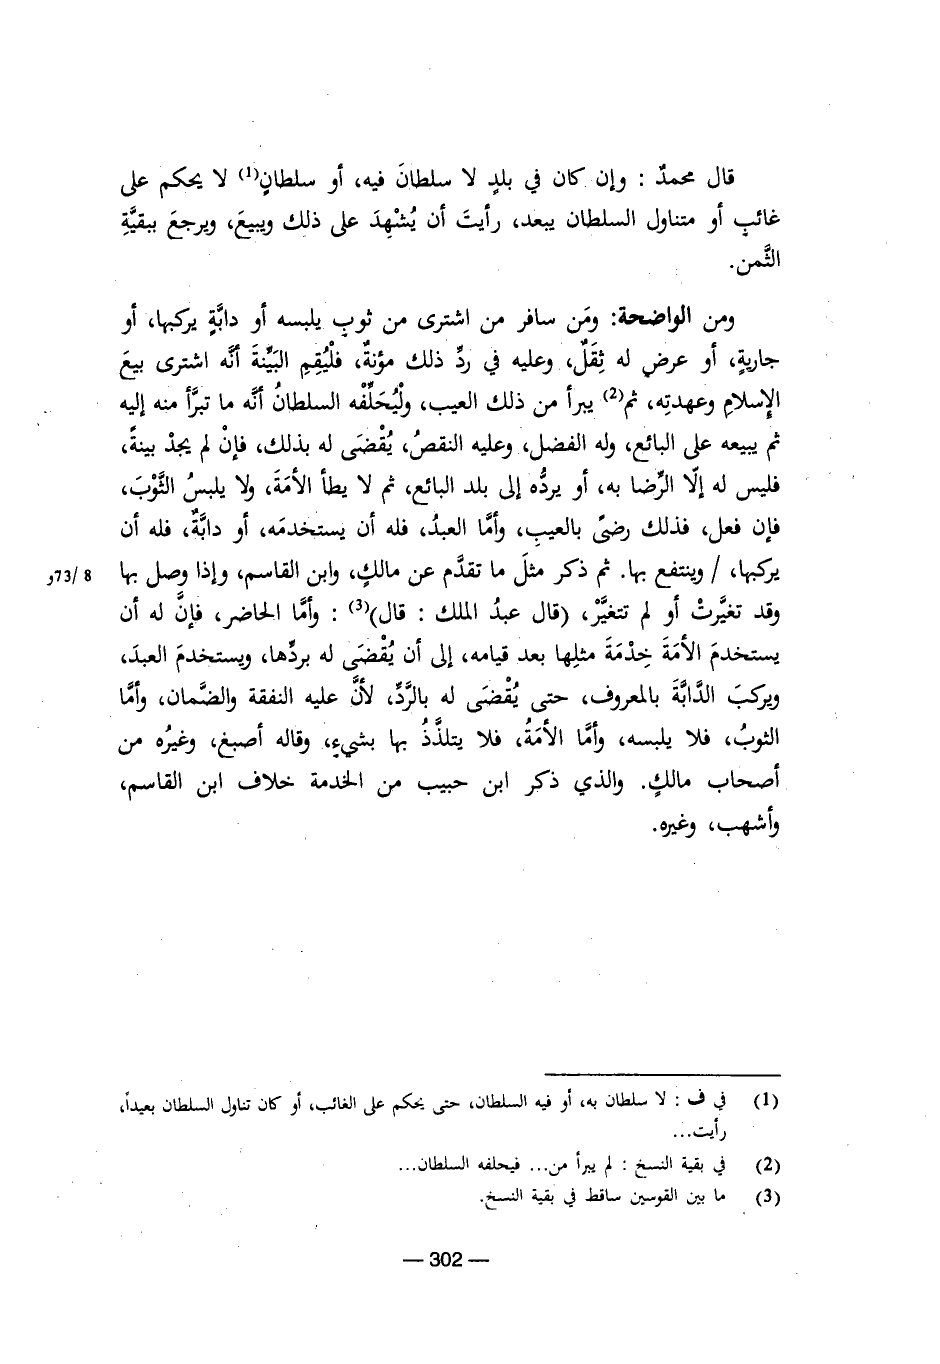 قال محمدٌ : وإن كان في بلدٍ لا سلطانَ فيه، أو سلطانٍ(1) لا يحكم على
غائبٍ أو متناول السلطان يبعد، رأيتَ أن يُشْهِدَ على ذلك ويبيعَ، ويرجعَ ببقيَّةِ
الثَّمن.
ومن الواضحة: ومَن سافر من اشترى من ثوبٍ يلبسه أو دابَّةٍ يركبها، أو
جاريةٍ، أو عرضٍ له ثِقَلٌ، وعليه في ردِّ ذلك مؤنةٌ، فلْيُقِمِ البَيِّنةَ أنَّه اشترى بيعَ
الإِسلامِ وعهدتِه، ثم(2) يبرأ من ذلك العيب، ولْيُحَلِّفْه السلطانُ أنَّه ما تبرَّأ منه إليه
ثم يبيعه على البائع، وله الفضل، وعليه النقصُ، يُقْضَى له بذلك، فإنْ لم يجدْ بينةً،
فليس له إلّا الرِّضا به، أو يردُّه إلى بلد البائع، ثم لا يطأ الأمَةَ، ولا يلبسُ الثَّوْبَ،
فإن فعل، فذلك رضىً بالعيبِ، وأمَّا العبدُ، فله أن يستخدمَه، أو دابَّةٌ، فله أن
يركبها، / وينتفع بها. ثم ذكر مثلَ ما تقدَّم عن مالكٍ، وابن القاسم، وإذا وصل بها 8 /73و
وقد تغيَّرتْ أو لم تتغيَّرْ، (قال عبدُ الملك : قال)(3) : وأمَّا الحاضر، فإنَّ له أن
يستخدمَ الأمَةَ خِدْمَةَ مثلِها بعد قيامه، إلى أن يُقْضَى له بردِّها، ويستخدمَ العبدَ،
ويركبَ الدَّابَّةَ بالمعروف، حتى يُقْضَى له بالرَّدِّ، لأنَّ عليه النفقة والضَّمان، وأمَّا
الثوبُ، فلا يلبسه، وأمَّا الأمَةُ، فلا يتلذَّذُ بها بشيءٍ، وقاله أصبغ، وغيرُه من
أصحاب مالكٍ. والذي ذكر ابن حبيب من الخدمة خلاف ابن القاسم،
وأشهب، وغيره.
(1) في ف : لا سلطان به، أو فيه السلطان، حتى يحكم على الغائب، أو كان تناول السلطان بعيداً،
رأيت...
(2) في بقية النسخ : لم يبرأ من... فيحلفه السلطان...
(3) ما بين القوسين ساقط في بقية النسخ.
— 302 —